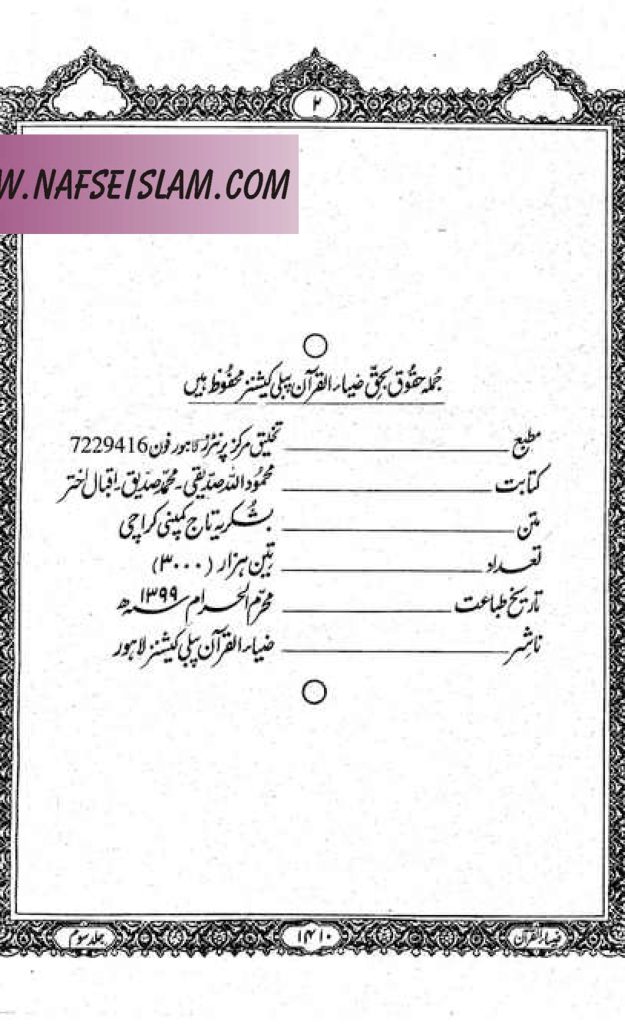 ۲
W.NAFSEISLAM.COM
جُملہ حقُوق بحقِّ ضیاء القرآن پبلی کیشنز محفُوظ ہیں
مطبع تخلیق مرکز پرنٹرز لاہور فون 7229416
کتابت محمُود اللہ صدّیقی۔ محمّد صدّیق۔ اقبال اختر
متن بشُکریہ تاج کمپنی کراچی
تعداد تین ہزار (۳۰۰۰)
تاریخ طباعت محرّم الحرام ۱۳۹۹ سنہ ھ
ناشر ضیاء القرآن پبلی کیشنز لاہور
ضیاء القرآن
۱۴۱۰
جلد سوم